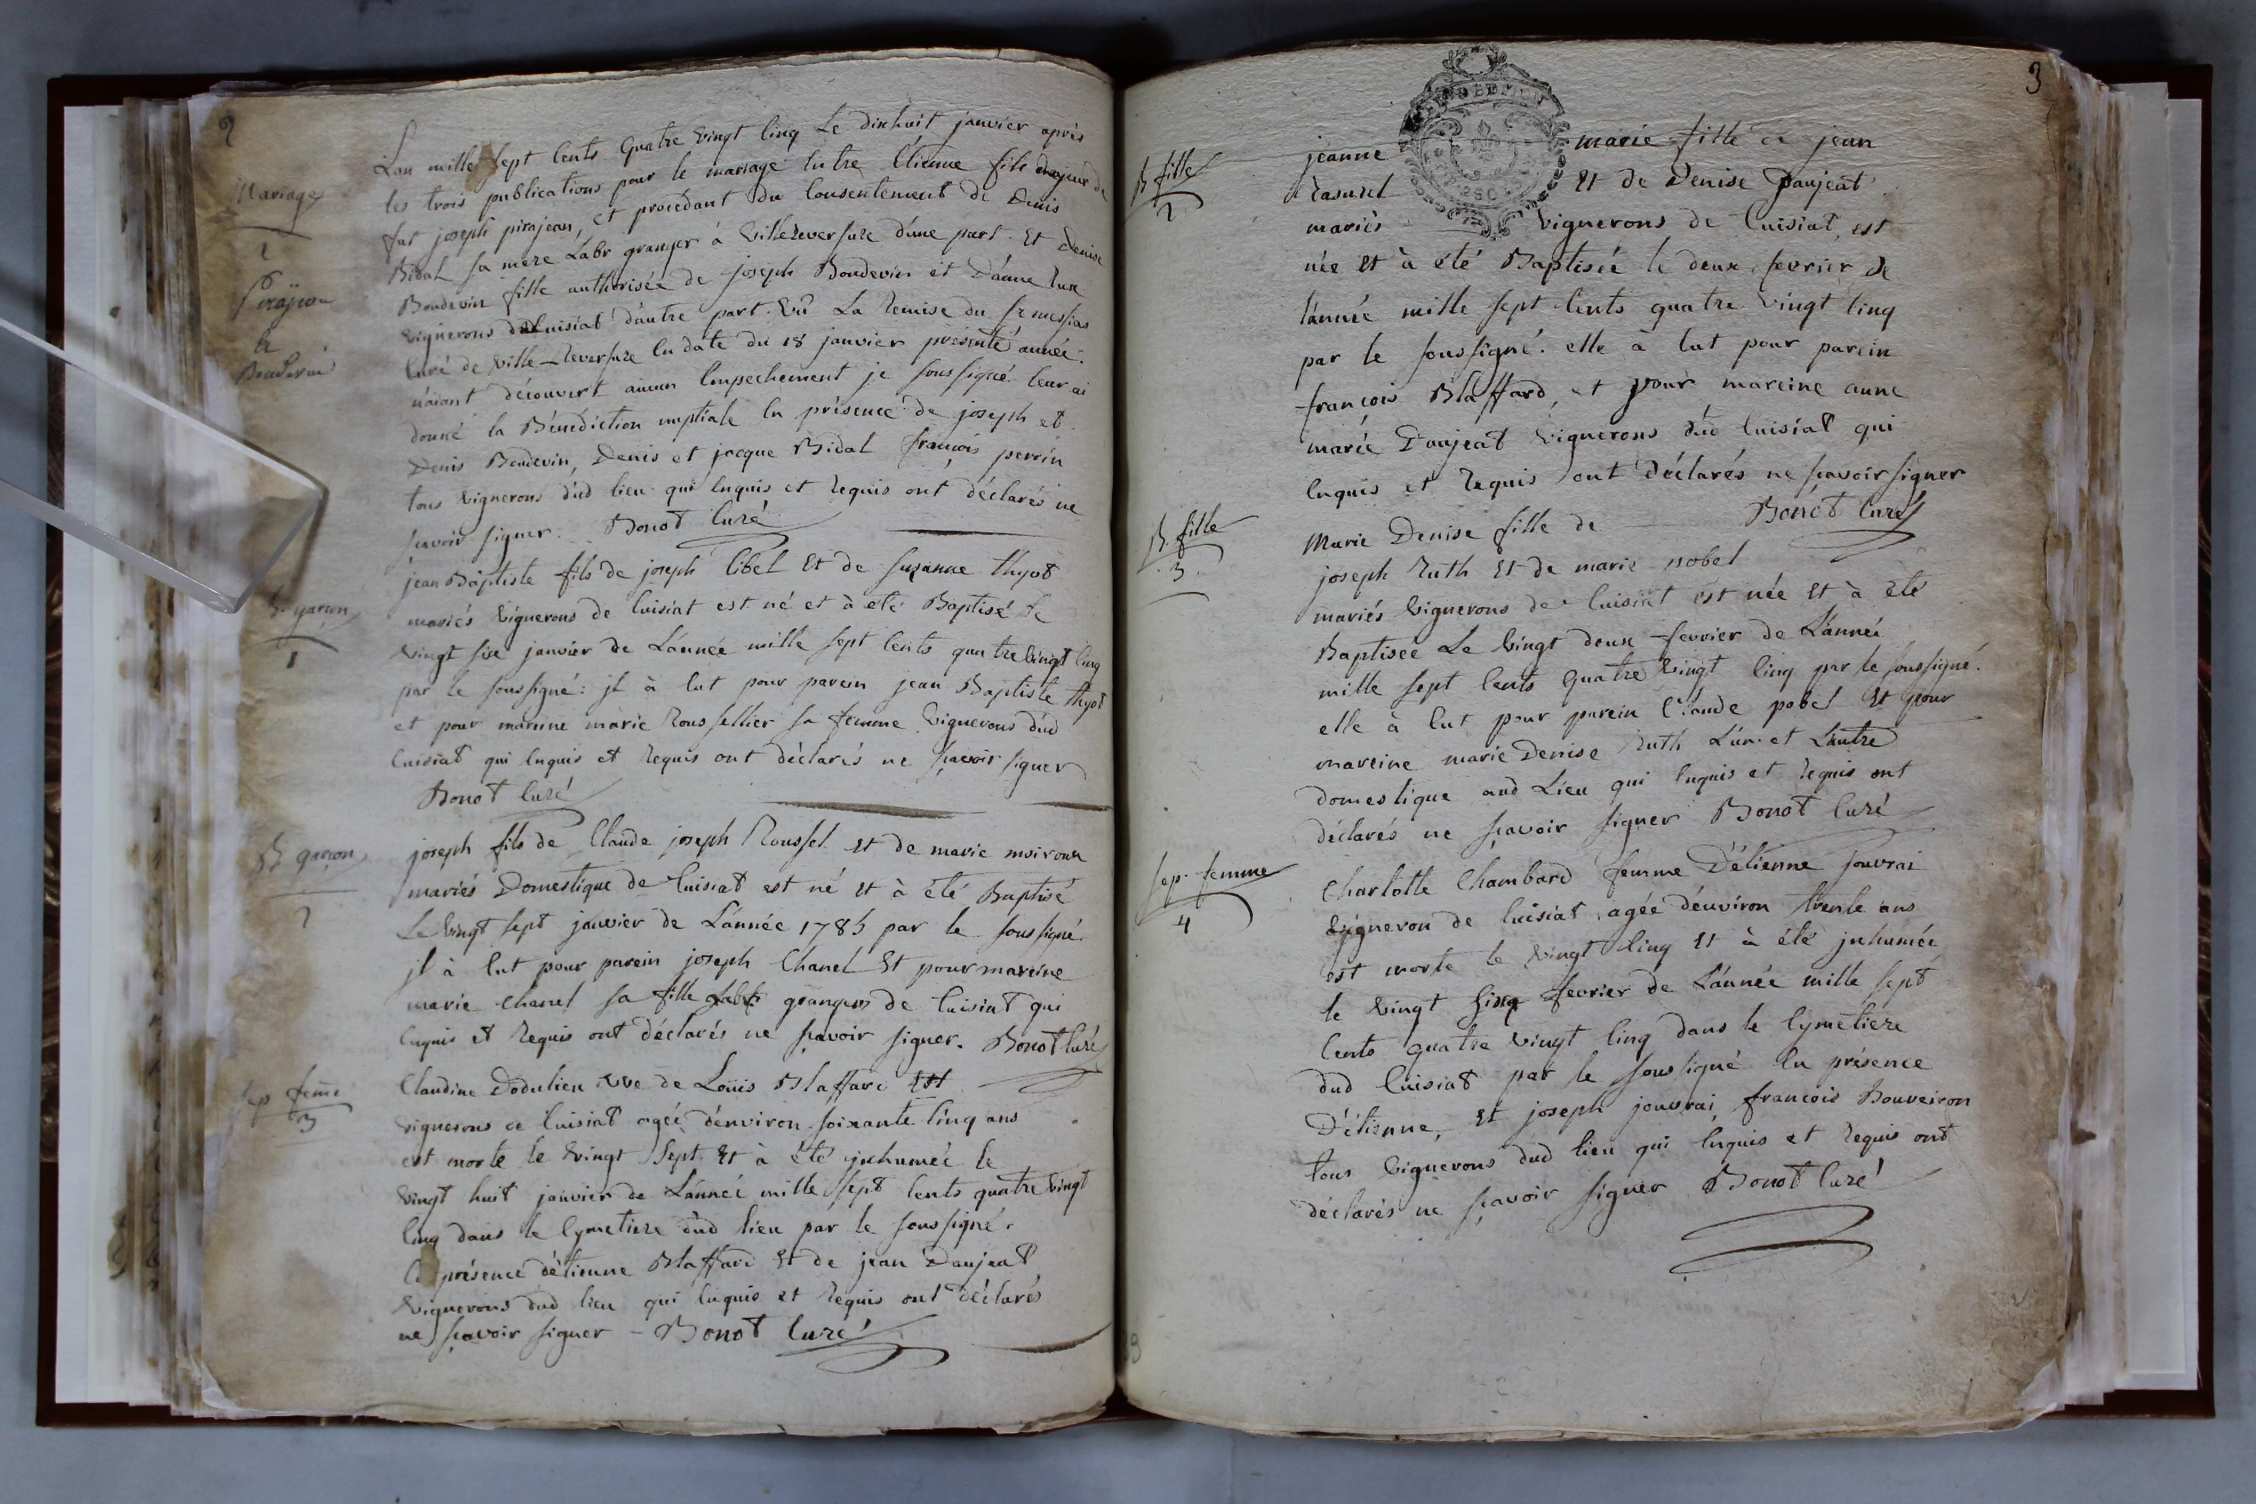 2
Mariage
1
Pirajean
et
Boudevin
L'an mille sept cents quatre vingt cinq le dixhuit janvier après
les trois publications pour le mariage entre Étienne fils majeur de
fut joseph pirajean, et procédant du consentement de Denis
Bidal sa mere Labr granger à Villereversure d'une part. Et Denise
Boudevin fille authorisée de joseph Boudevin et D'anne
vignerons de Cuisiat d'autre part. Vu La remise du sr messias
Curé de Ville-reversure en date du 18 janvier présente année.
n'aiant découvert aucun Empechement je soussigné leur ai
donné la Bénédiction nuptiale en présence de joseph et
Denis Boudevin, Denis et jacque Bidal françois perrin
tous vignerons dud lieu qui enquis et requis ont déclarés ne
sçavoir signer. Bonot Curé
B. garçon
1
jean Baptiste fils de joseph Cibel Et de suzanne thyot
mariés vignerons de Cuisiat est né et à été Baptisé le
vingt six janvier de L'année mille sept cents quatre vingt cinq
par le soussigné: jl à eut pour parein jean Baptiste thyot
et pour mareine marie Roussellier sa femme vignerons dud
Cuisiat qui enquis et requis ont déclarés ne sçavoir signer
Bonot Curé
B garçon
2
joseph fils de Claude joseph Roussel et de marie moiroux
mariés Domestique de Cuisiat est né et à été Baptisé
Le vingt sept janvier de L'année 1785 par le soussigné
jl à eut pour parein joseph Chanel Et pour mareine
marie Chanel sa fille Labr grangers de Cuisiat qui
enquis et requis ont déclarés ne sçavoir signer. Bonot Curé
Sep. feme
3
Claudine Dodulien vve de Loüis Blaffard Est
vignerons de Cuisiat agée d'environ soixante cinq ans
est morte le vingt sept Et à été jnhumée le
vingt huit janvier de L'année mille sept cents quatre vingt
cinq dans le Cymetiere dud lieu par le soussigné.
En présence d'étienne Blaffard Et de jean Daujeat
vignerons dud lieu qui enquis et requis ont déclarés
ne sçavoir signer - Bonot Curé
3
B fille
2
jeanne marie fille de jean
Rasurel Et de Denise Daujeat
mariés vignerons de Cuisiat, est
née Et à été Baptisée le deux fevrier de
l'année mille sept cents quatre vingt cinq
par le soussigné. elle à eut pour parein
françois Blaffard, et pour mareine anne
marie Daujeat vignerons dud Cuisiat qui
enquis et requis ont déclarés ne sçavoir signer
Bonot Curé
B fille
3
Marie Denise fille de
joseph Ruth Et de marie nobel
mariés vignerons de Cuisiat est née Et à été
Baptisée Le vingt deux fevrier de L'année
mille sept cents quatre vingt cinq par le soussigné.
elle à eut pour parein Claude pobel Et pour
mareine marie Denise Ruth L'un et L'autre
domestique aud Lieu qui enquis et requis ont
déclarés ne sçavoir signer Bonot Curé
Sep. femme
4
Charlotte Chambard femme D'étienne jouvrai
vigneron de Cuisiat agée d'environ trente ans
est morte le vingt cinq Et à été jnhumée
le vingt six fevrier de L'année mille sept
cents quatre vingt cinq dans le Cymetiere
dud Cuisiat par le soussigné En présence
D'étienne, Et joseph jouvrai, françois Bouveiron
tous vignerons dud lieu qui enquis et requis ont
déclarés ne sçavoir signer Bonot Curé